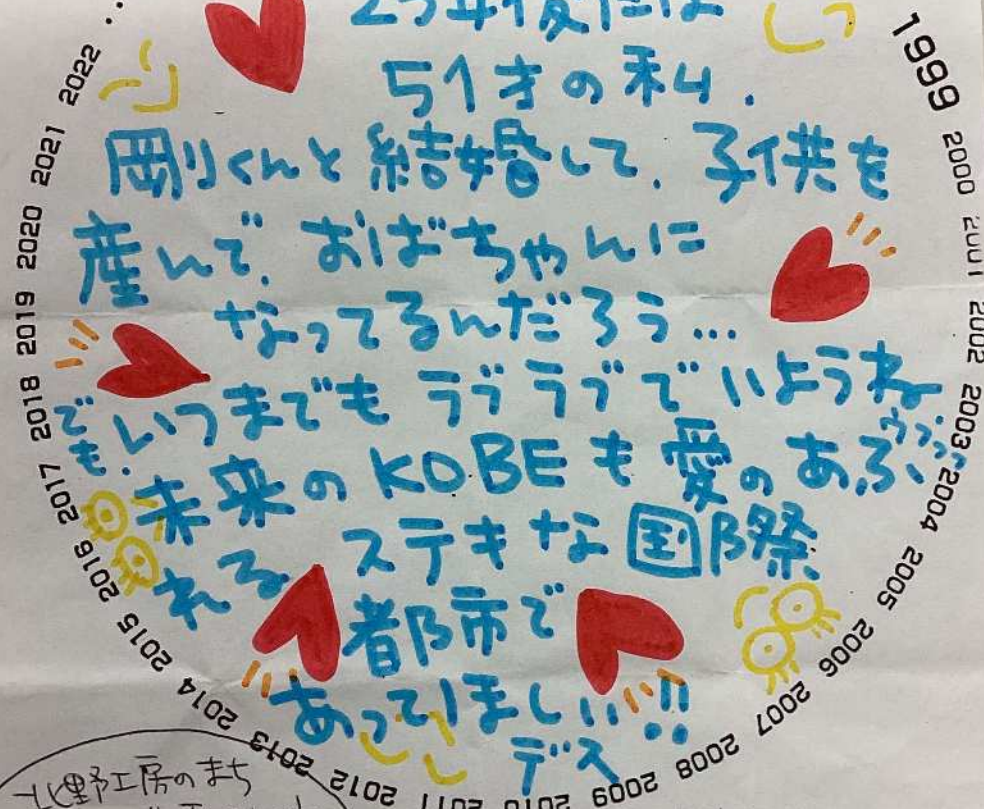 25年後には
51才の私.
剛くんと結婚して、子供を
産んで、おばちゃんに
なってるんだろう…
でも、いつまでも ラブラブでいようね
ウフッ
未来のKOBEも愛のあふ
れる ステキな国際
都市で
あってほしい!!
デス
1999
2000
2001
2002
2003
2004
2005
2006
2007
2008
2009
2010
2011
2012
2013
2014
2015
2016
2017
2018
2019
2020
2021
2022
...
北野工房のまち